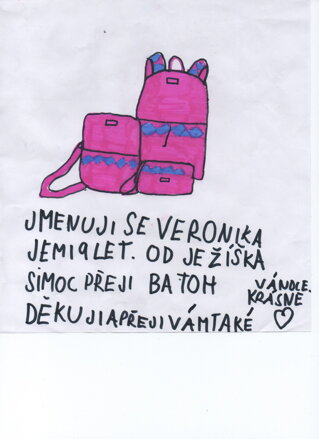 JMENUJI SE VERONIKA
JE MI 9 LET. OD JEŽÍŠKA
SI MOC PŘEJI BATOH
DĚKUJI A PŘEJI VÁM TAKÉ
KRÁSNÉ
VÁNOCE.